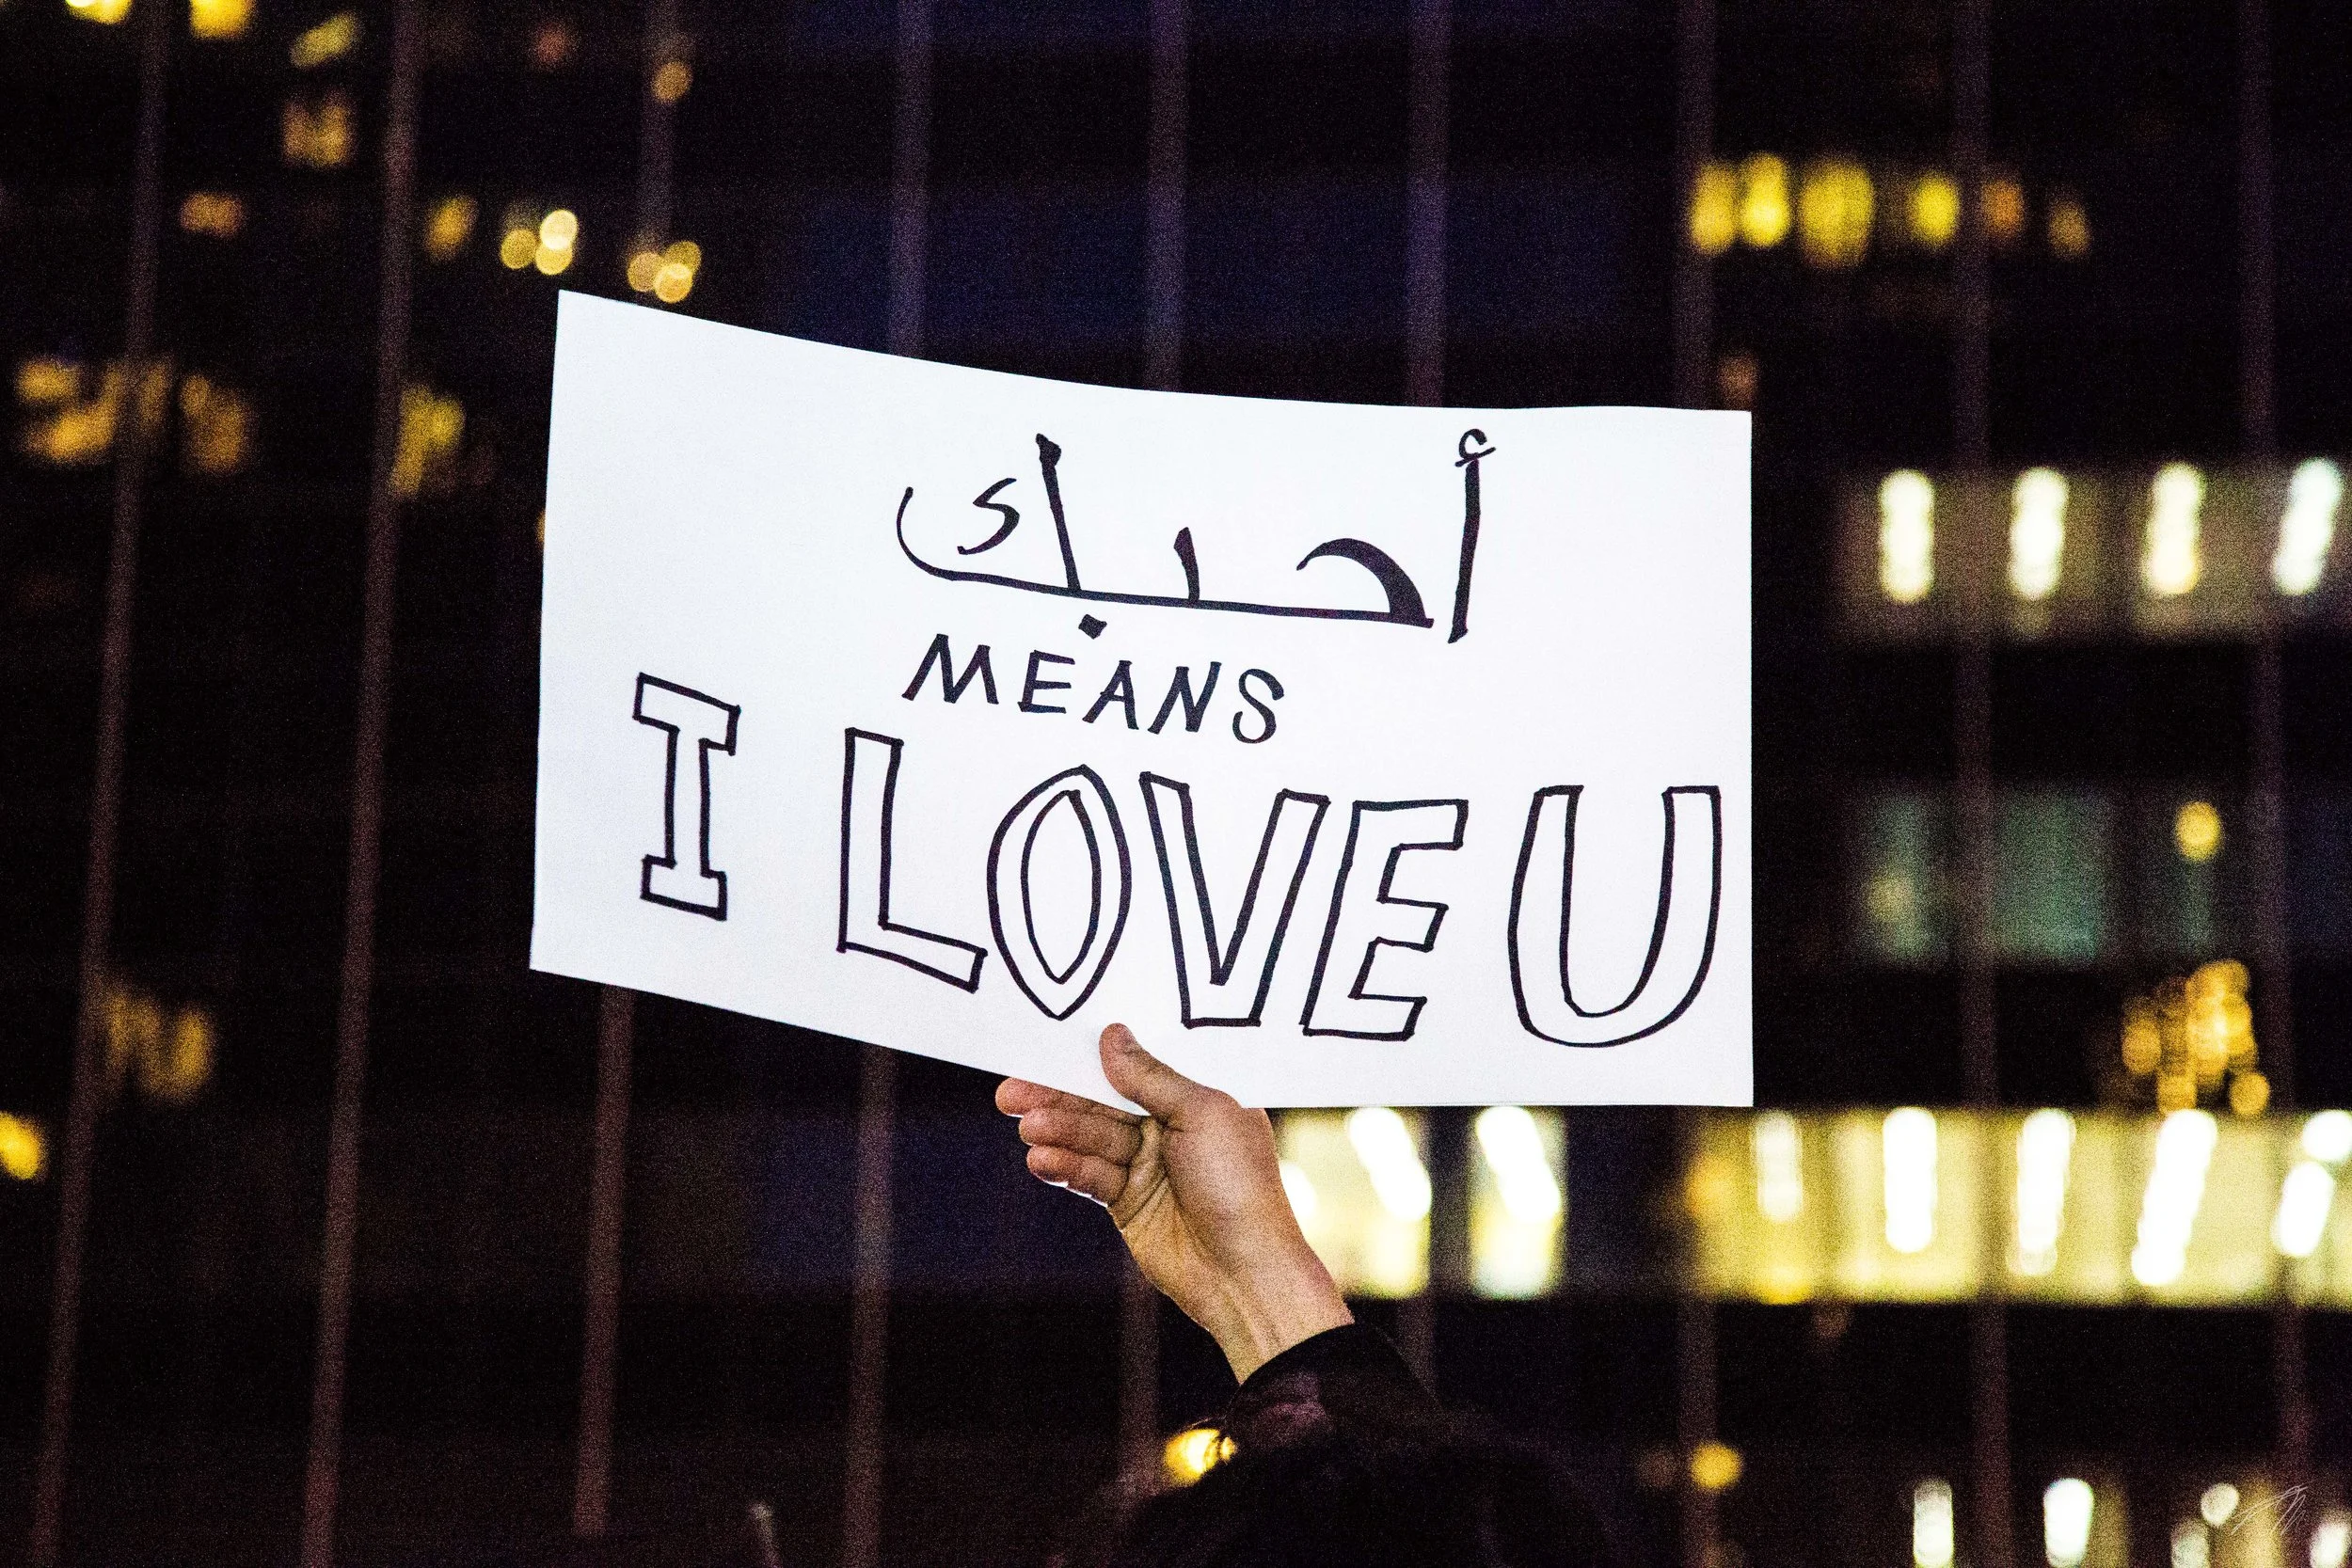 أحبك
MEANS
I LOVE U